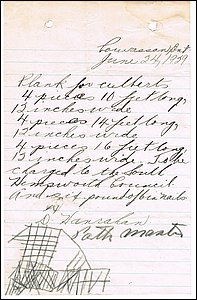 June 24, 1929
Plank for culberts
4 pieces 10 feet long,
12 inches wide
4 pieces 14 feet long,
12 inches wide
4 pieces 16 feet long,
12 inches wide, To be
charged to the South
Council
and six pounds of six nails
Path Master